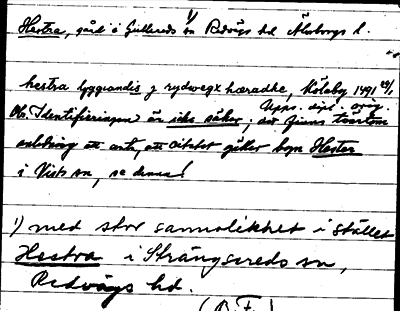 Hestra, gård i Gullereds sn Redvägs hd Älvsborgs l.
hestra byggiandis j rydwegx hæradhe, Möleby 1491 29/1
Upps. dipl. orig.
Obs. Identifieringen är icke säker; det finns tvärtom
anledning att anta, att citatet gäller byn Hester
i Vists sn, se denna!
1) med stor sannolikhet i stället
Hestra i Strängsereds sn,
Redvägs hd.